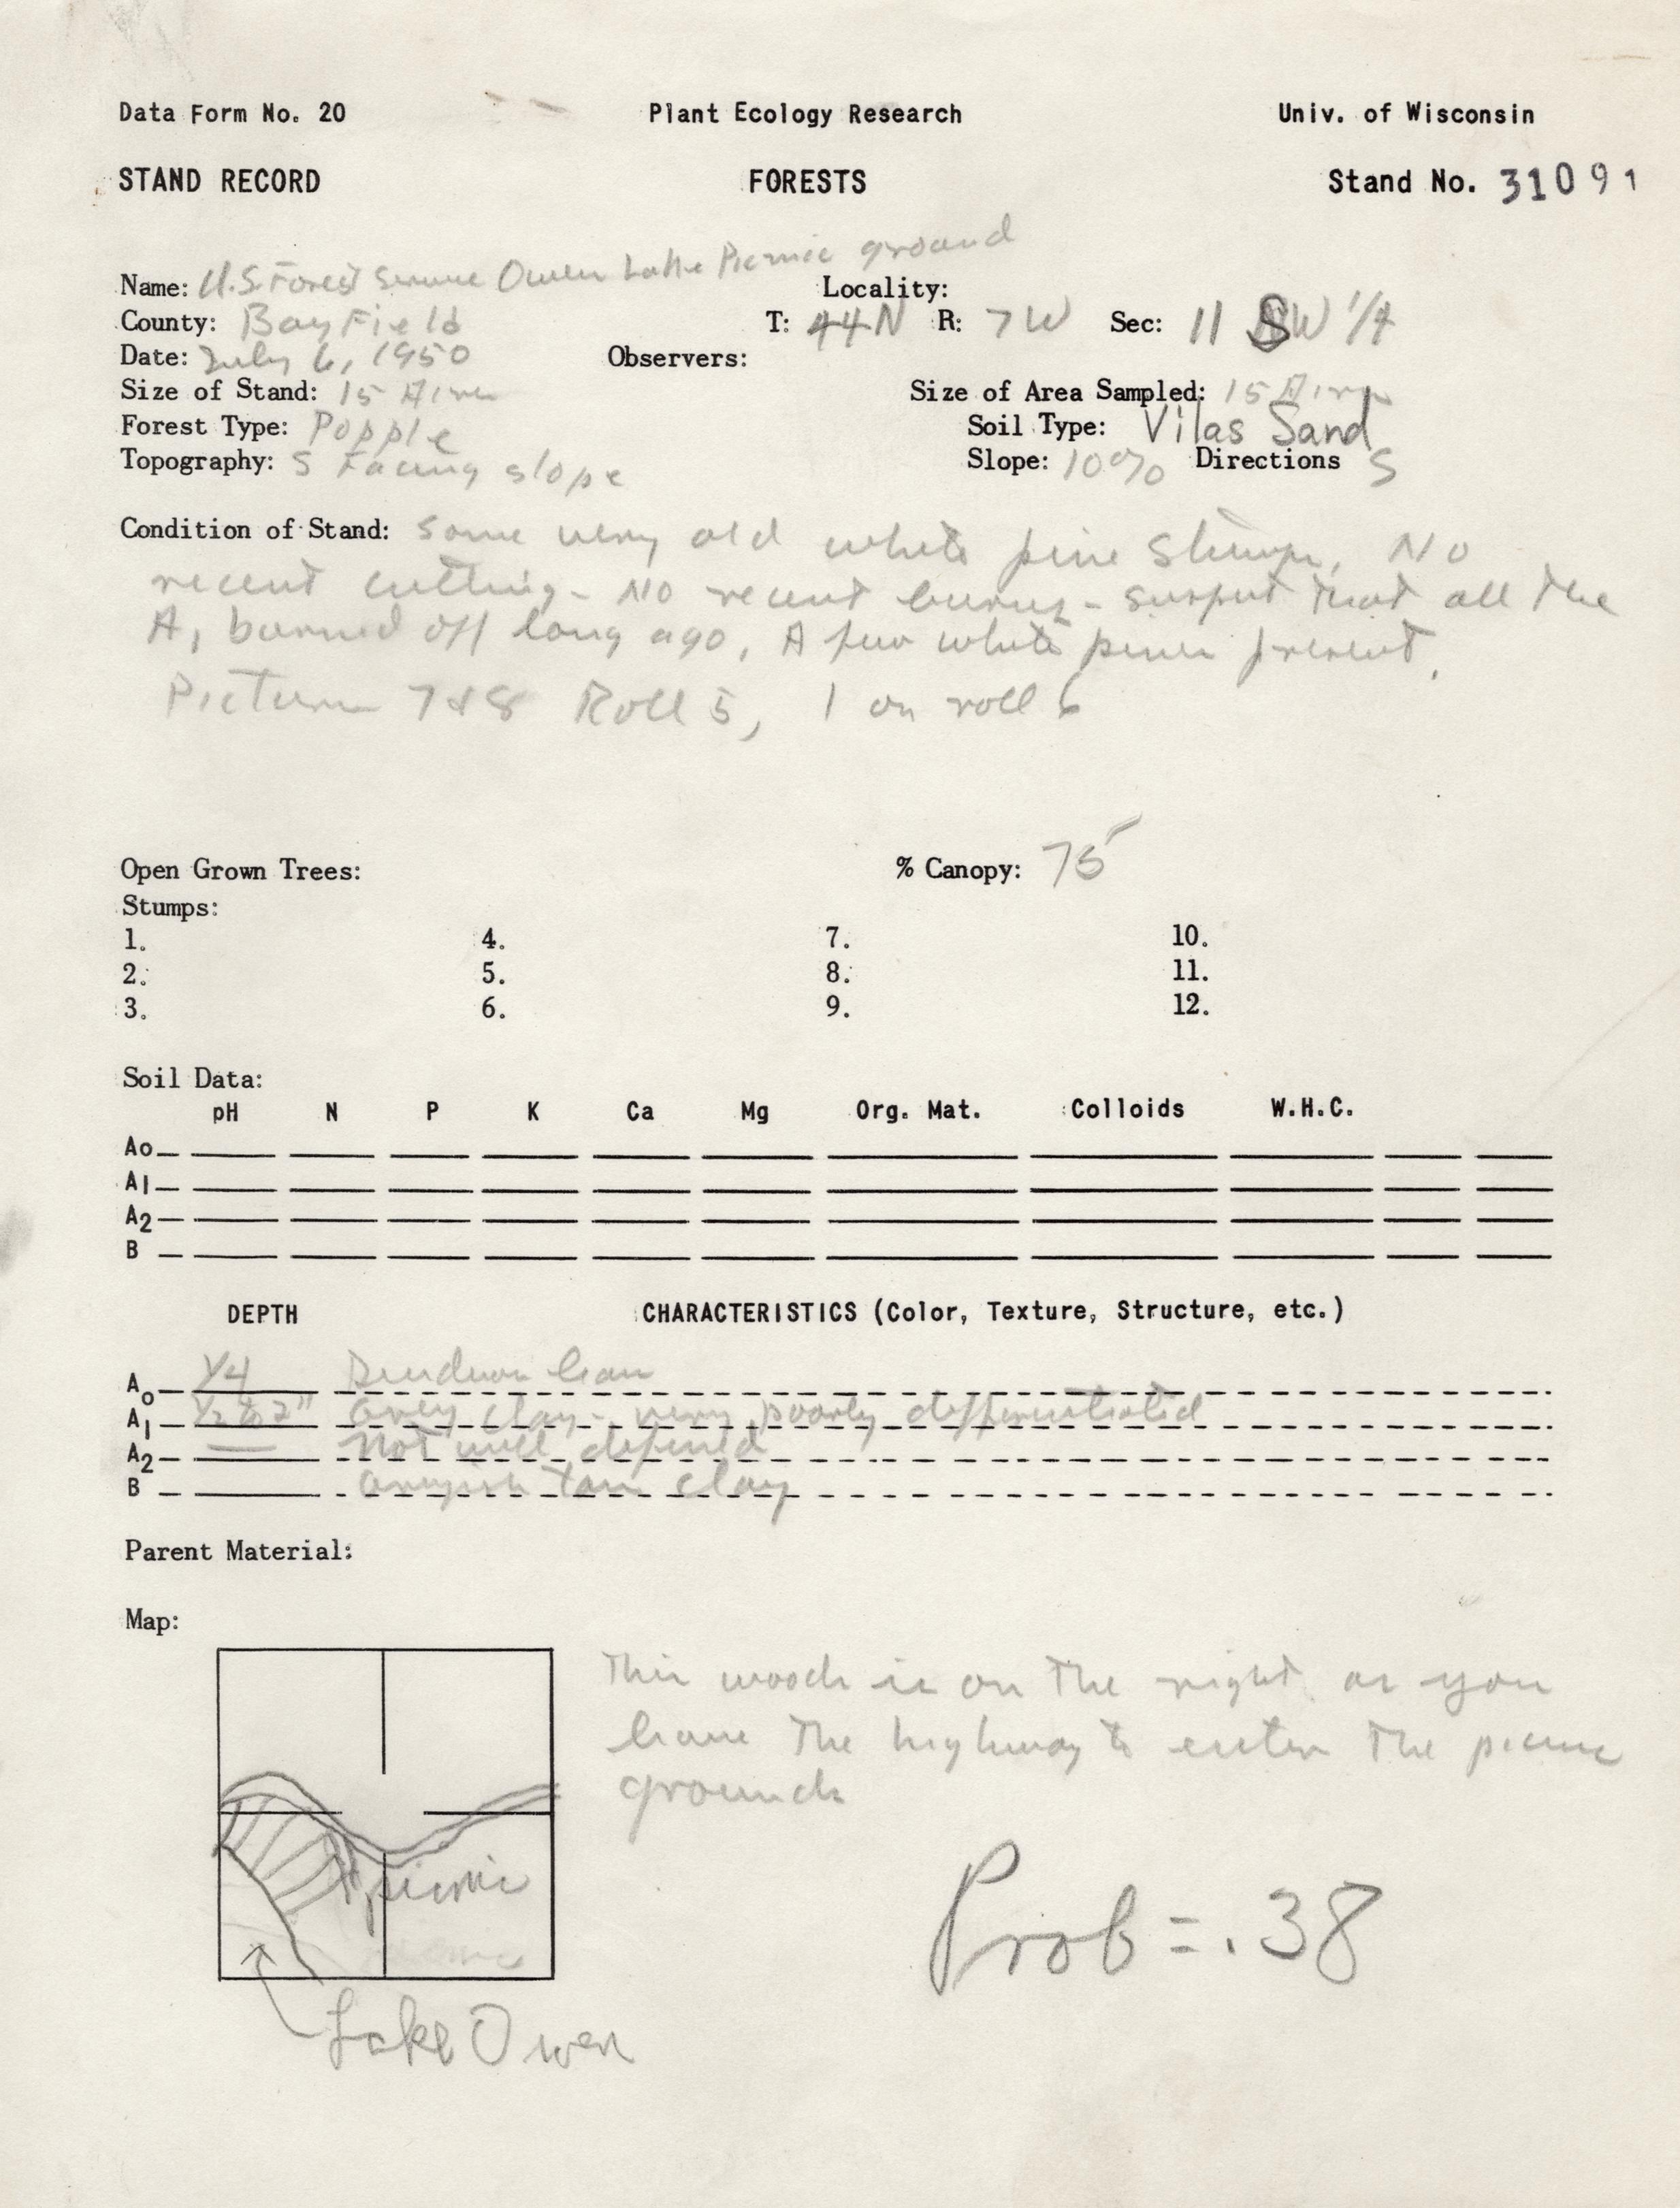 Data Form No. 20 Plant Ecology Research Univ. of Wisconsin
STAND RECORD FORESTS Stand No. 31091
Name: U.S. Forest Service Owen Lake Picnic ground Locality:
County: BayField T: 44N R: 7W Sec: 11 SW 1/4
Date: July 6, 1950 Observers:
Size of Stand: 15 Acres Size of Area Sampled: 15 Acres
Forest Type: Popple Soil Type: Vilas Sand
Topography: S Facing slope Slope: 10% Directions S
Condition of Stand: Some very old white pine stumps, No
recent cutting - No recent burns - suspect that all the
A1 burned off long ago, A few white pines present.
Pictures 7&8 Roll 5, 1 on roll 6
Open Grown Trees: % Canopy: 75
Stumps:
1. 4. 7. 10.
2. 5. 8. 11.
3. 6. 9. 12.
Soil Data:
pH N P K Ca Mg Org. Mat. Colloids W.H.C.
Ao
A1
A2
B
DEPTH CHARACTERISTICS (Color, Texture, Structure, etc.)
Ao 1/4
A1 1/2 to 2" Grey clay - very poorly differentiated
A2 Not well defined
B Greyish tan clay
Parent Material:
Map:
This woods is on the right as you
leave the highway to enter the picnic
grounds
picnic
Prob = .38
Lake Owen